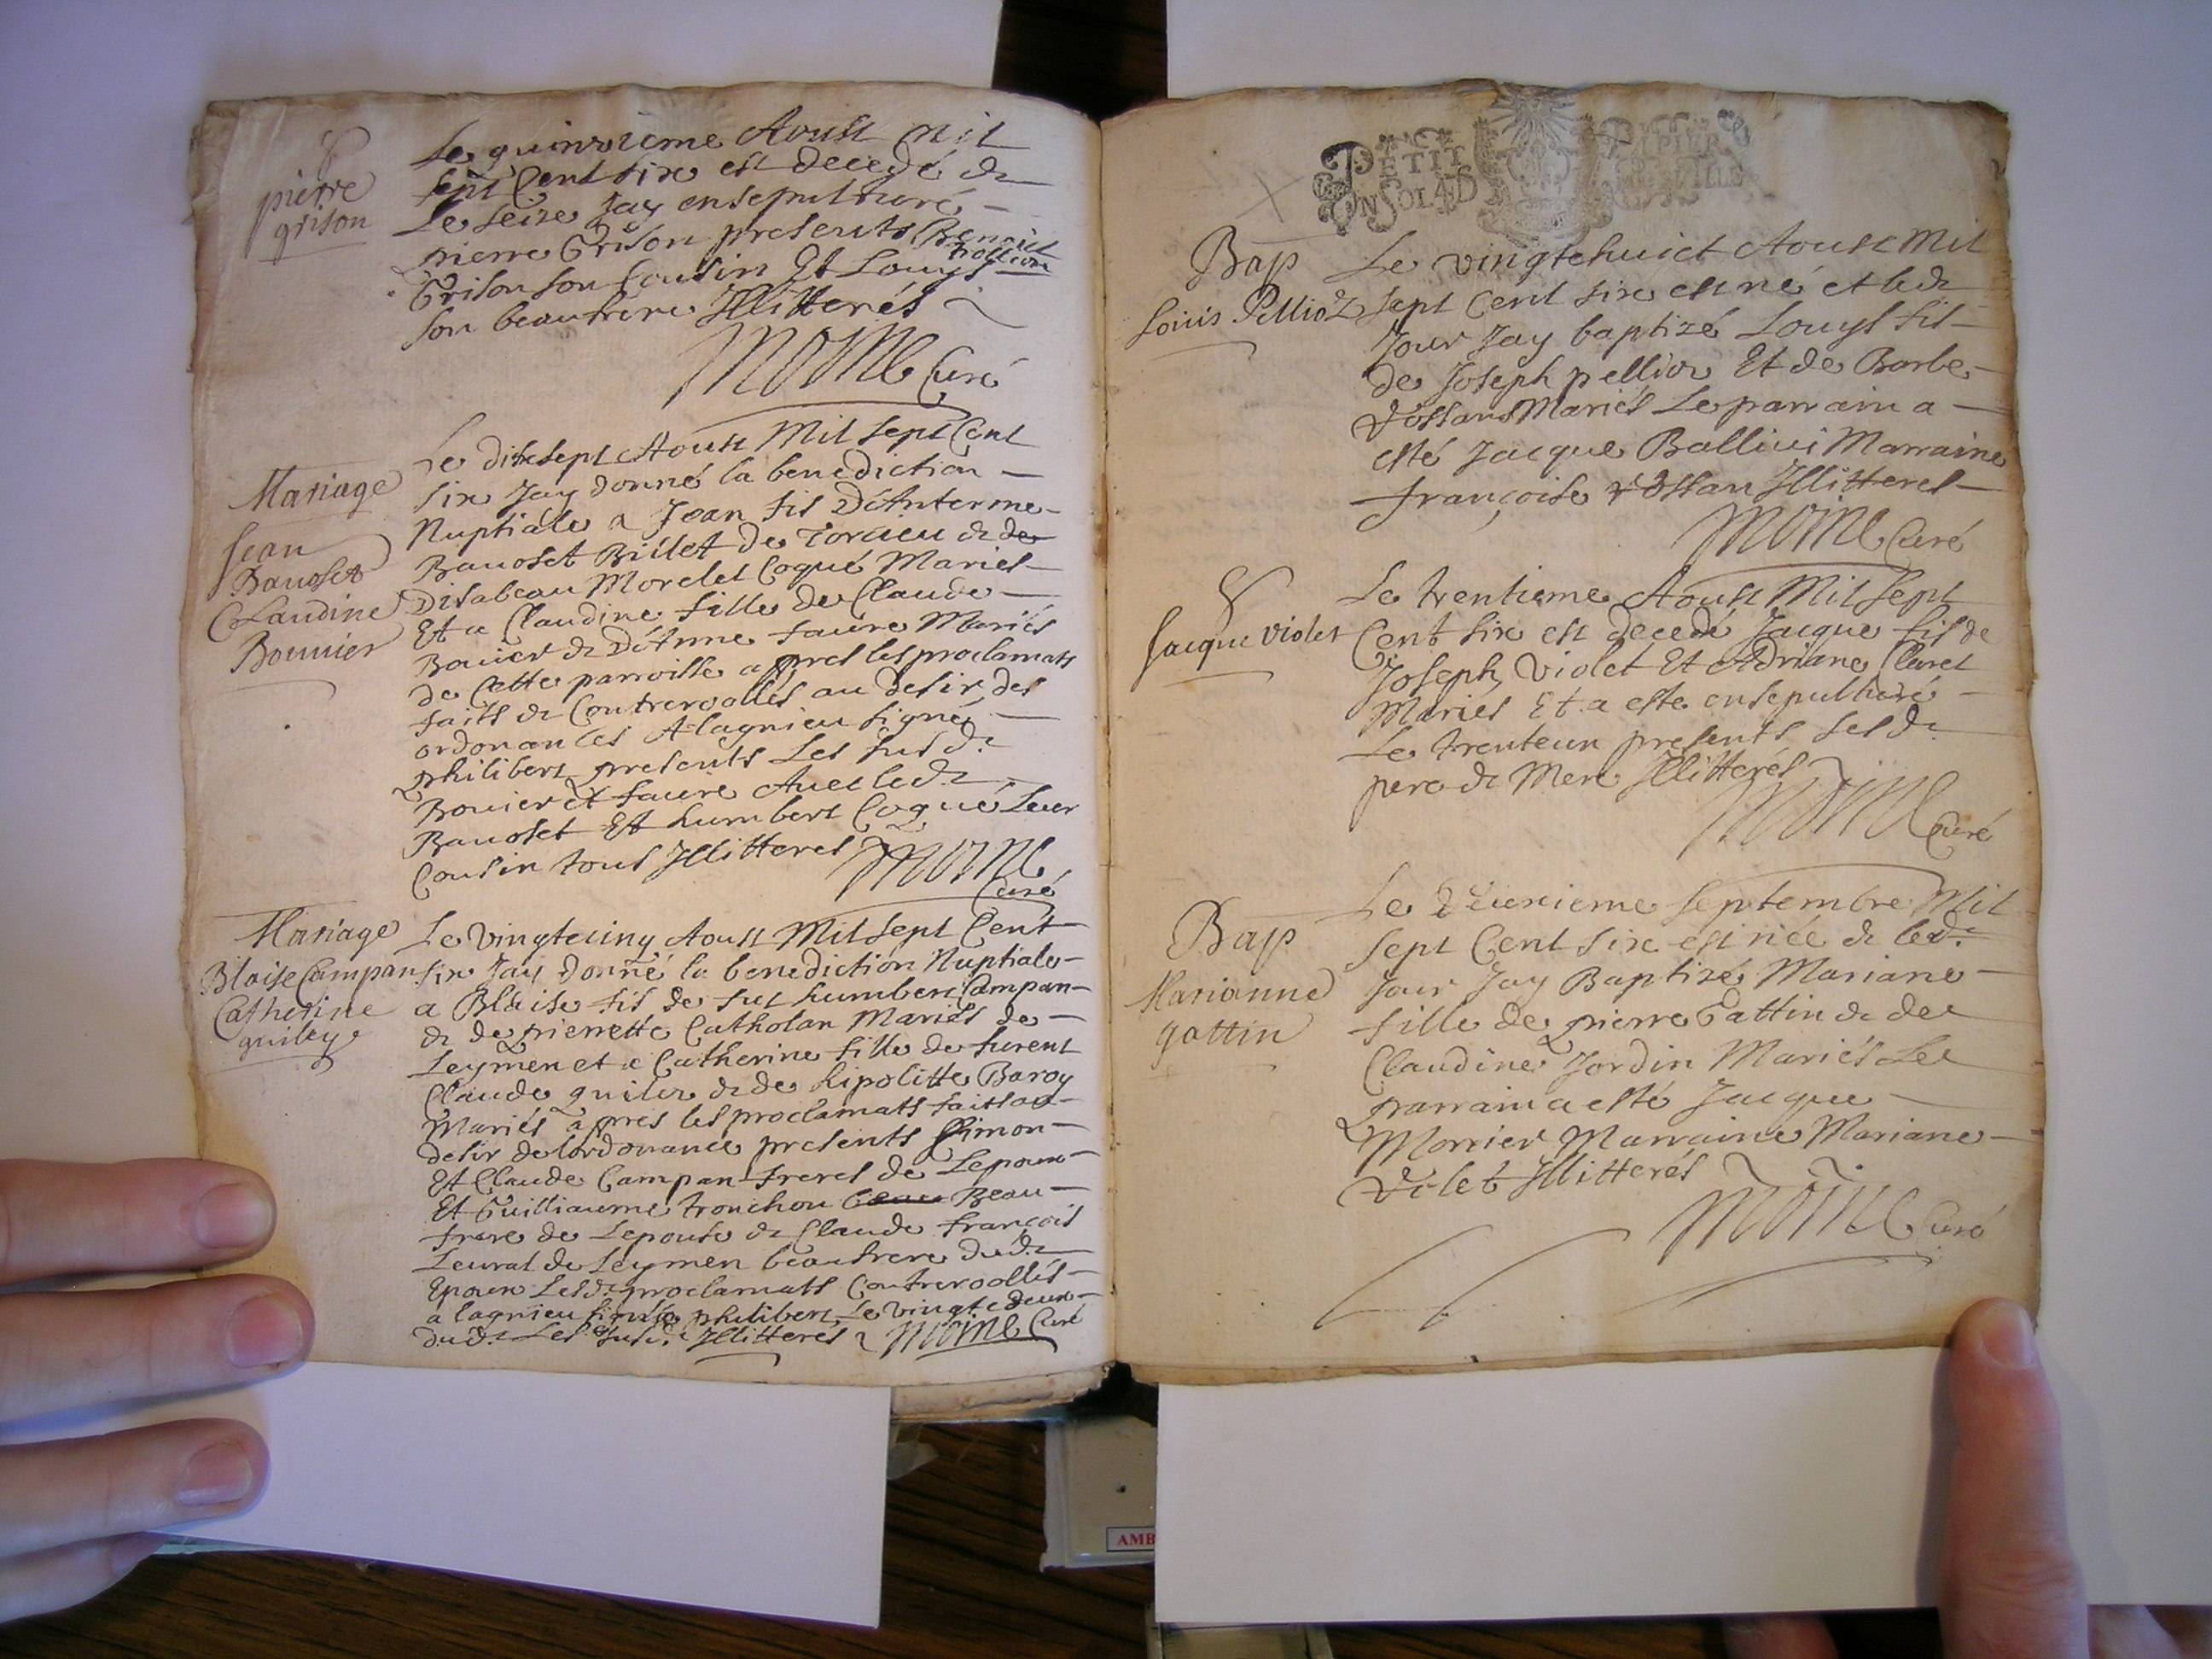 pierre
grison
Le quinzieme Aoust Mil
sept Cent six est decedé &
Le seize Jay ensepulturé
pierre Grison presents Benoict
Grison son Cousin Et Louys
son beaufrere Illitterés
Moine Curé
Mariage
Jean
Bauoset
Claudine
Bouuier
Le dixsept Aoust Mil sept Cent
six Jay donné la benediction
Nuptiale a Jean fil D'Anterme
Bauoset Billet de Torcieu & de
Disabeau Morelet Coqué Mariés
Et a Claudine fille de Claude
Bouier & D'Anne faure Mariés
de Cette parroisse appres les proclamats
faits & Controrollés au desir des
ordonances A lagnieu signé
philibert presents Les sus d.
Bouier et faure Auec led.
Bauoset Et humbert Coqué Leur
Cousin tous Illitterés Moine
Curé
Mariage
Blaise Campan
Catherine
quiley
Le vingtecinq Aoust Mil sept Cent
six Jay donné la benediction Nuptiale
a Blaise fil de fut humbert Campan
& de pierrette Catholan Mariés de
Leymen et a Catherine fille de furent
Claude quiler & de hipolitte Baroy
Mariés appres les proclamats faits au
desir de lordonance presents Simon
Et Claude Campan freres de Lepoux
Et Guilliaume tronchon Beau
frere de Lepouse & Claude françois
Leurat de Leymen beaufrere dud.
Epoux Lesd. proclamats Controrollés
a lagnieu signé philibert Le vingtedeux
dud. Les susd. Illitterés Moine Curé
PETIT PAPIER
UN SOL 4 D
Bap
Louis Pellioz
Le vingtehuict Aoust Mil
sept Cent six est né et led.
Jour Jay baptizé Louys fil
de Joseph pellioz Et de Barbe
Vossans Mariés Le parrain a
esté Jacque Ballivi Marraine
françoise Vossan Illitterés
Moine Curé
Jacque violet
Le trentieme Aoust Mil Sept
Cent six est decedé Jacque fil de
Joseph Violet Et Adriane Claret
Mariés Et a esté ensepulturé
Le trenteun presents sesd.
pere & Mere Illitterés
Moine Curé
Bap
Marianne
gattin
Le deuxieme Septembre Mil
sept Cent six est née & led.
Jour Jay Baptizé Mariane
fille de pierre Gattin & de
Claudine Jordin Mariés Le
parrain a esté Jacque
Morrier Marraine Mariane
Violet Illitterés
Moine Curé
AMB